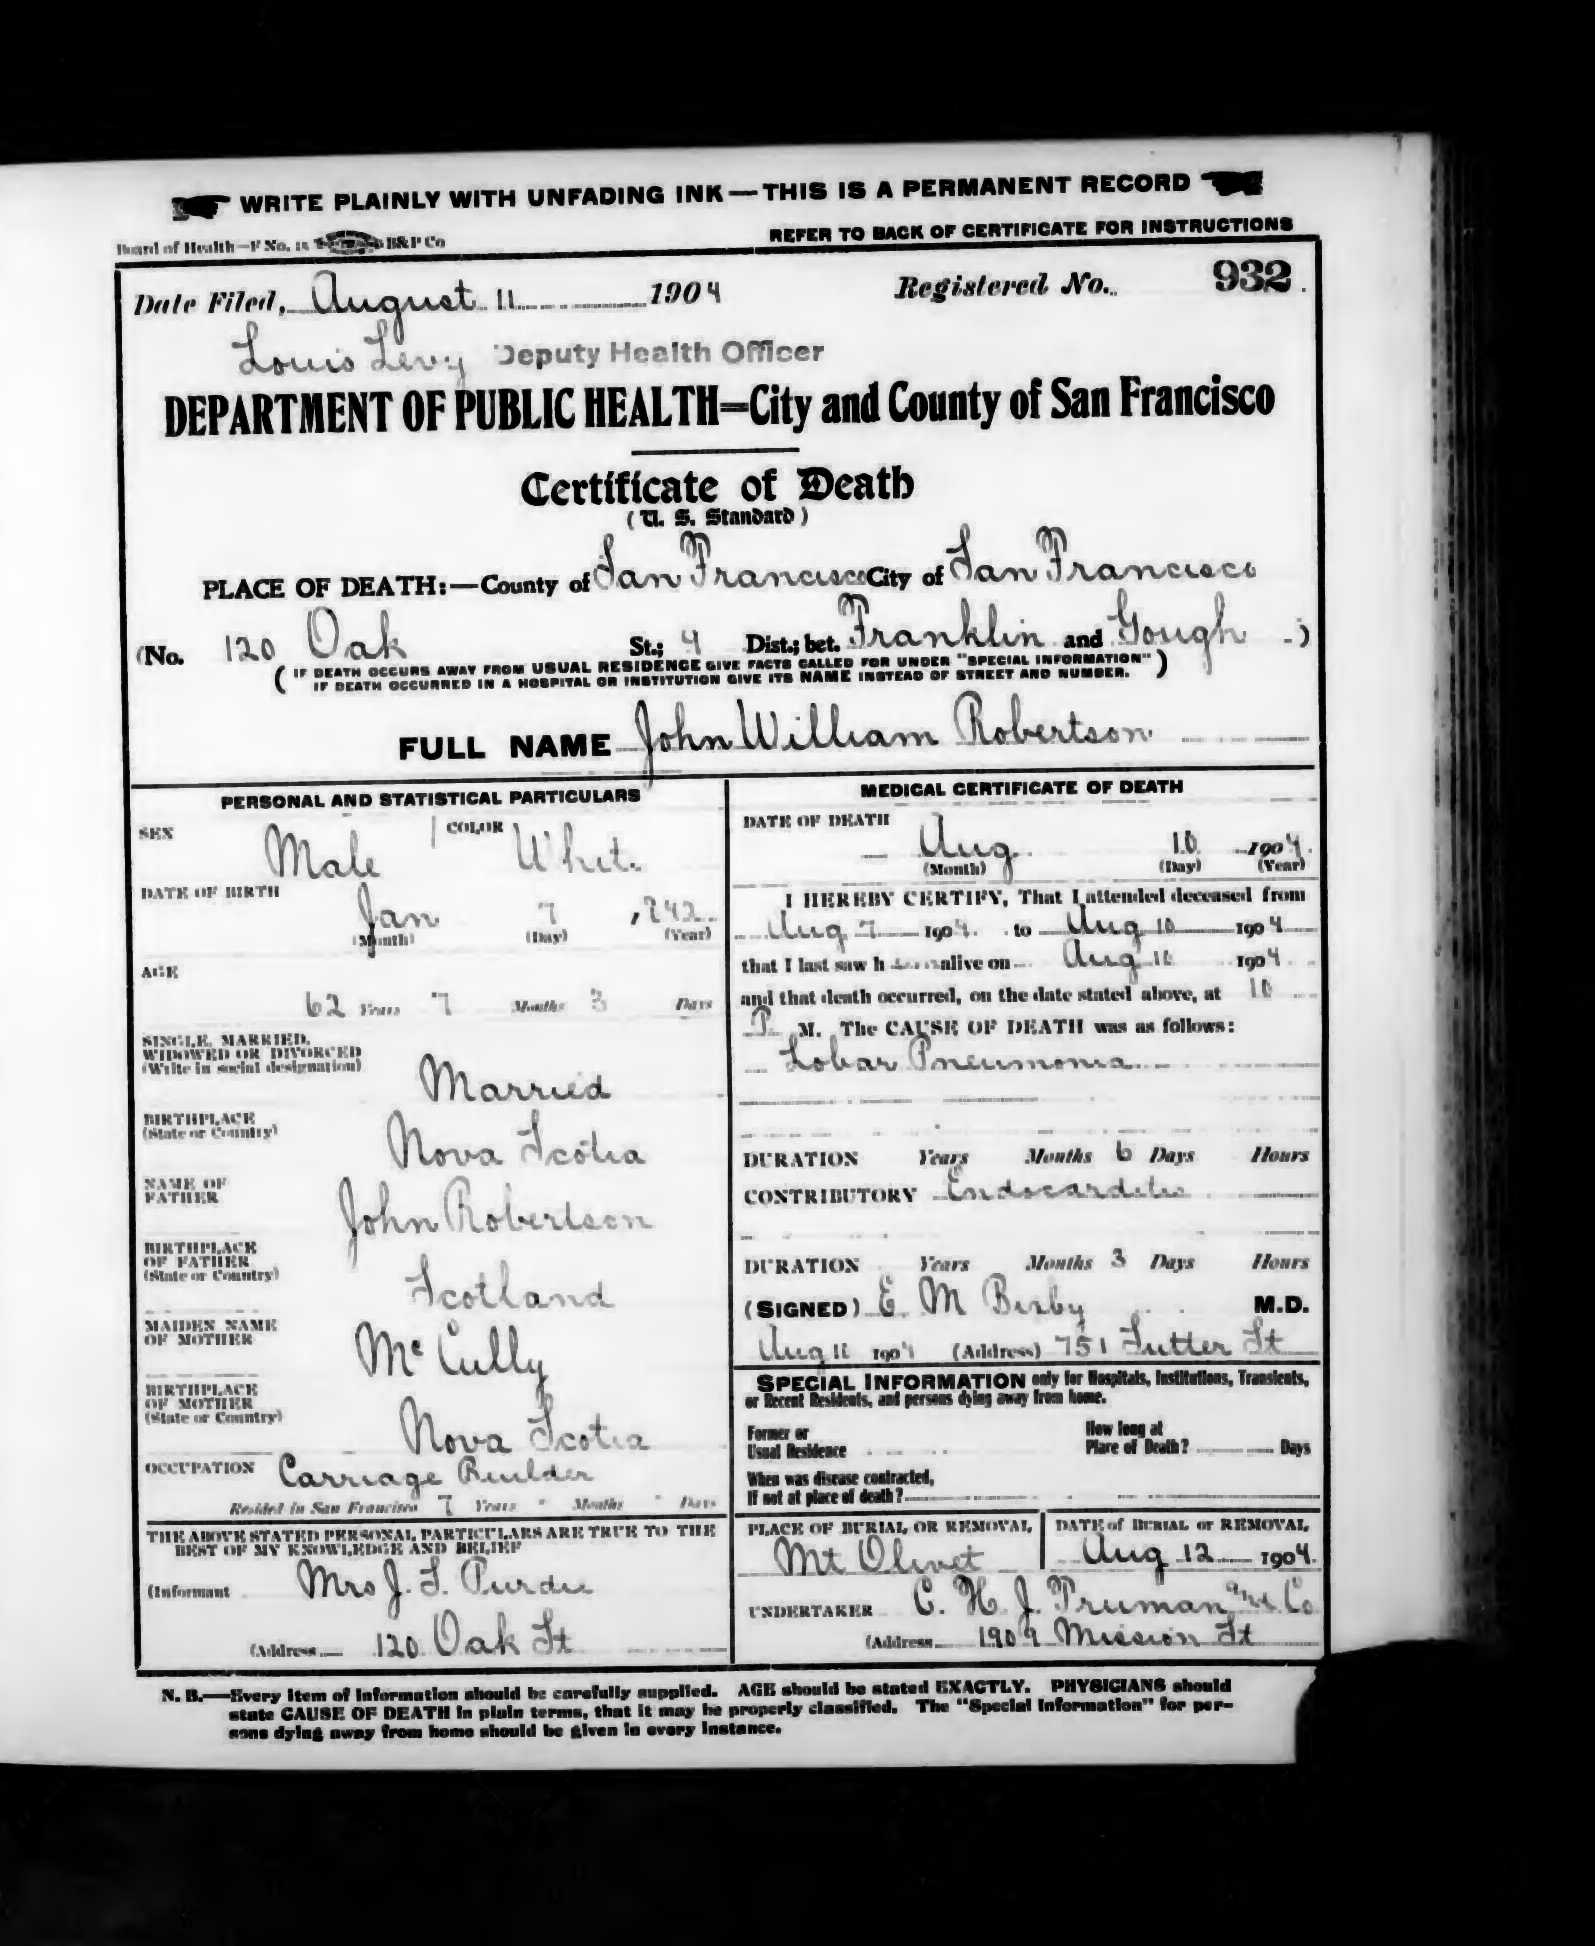 WRITE PLAINLY WITH UNFADING INK—THIS IS A PERMANENT RECORD
Board of Health—F No. B&P Co
REFER TO BACK OF CERTIFICATE FOR INSTRUCTIONS
Date Filed, August 11 1904 Registered No. 932
Louis Levy Deputy Health Officer
DEPARTMENT OF PUBLIC HEALTH=City and County of San Francisco
Certificate of Death
(U. S. Standard)
PLACE OF DEATH:—County of San Francisco City of San Francisco
(No. 120 Oak St.; 4 Dist.; bet. Franklin and Gough )
( IF DEATH OCCURS AWAY FROM USUAL RESIDENCE GIVE FACTS CALLED FOR UNDER "SPECIAL INFORMATION" )
IF DEATH OCCURRED IN A HOSPITAL OR INSTITUTION GIVE ITS NAME INSTEAD OF STREET AND NUMBER.
FULL NAME John William Robertson
PERSONAL AND STATISTICAL PARTICULARS
SEX Male COLOR White
DATE OF BIRTH
Jan 7 , 842
(Month) (Day) (Year)
AGE
62 Years 7 Months 3 Days
SINGLE, MARRIED,
WIDOWED OR DIVORCED
(Write in social designation)
Married
BIRTHPLACE
(State or Country)
Nova Scotia
NAME OF
FATHER
John Robertson
BIRTHPLACE
OF FATHER
(State or Country)
Scotland
MAIDEN NAME
OF MOTHER
McCully
BIRTHPLACE
OF MOTHER
(State or Country)
Nova Scotia
OCCUPATION Carriage Builder
Resided in San Francisco 7 Years " Months " Days
THE ABOVE STATED PERSONAL PARTICULARS ARE TRUE TO THE
BEST OF MY KNOWLEDGE AND BELIEF
(Informant Mrs J. S. Purdie
(Address 120 Oak St
MEDICAL CERTIFICATE OF DEATH
DATE OF DEATH
Aug 10 1904
(Month) (Day) (Year)
I HEREBY CERTIFY, That I attended deceased from
Aug 7 1904 to Aug 10 1904
that I last saw h alive on Aug 10 1904
and that death occurred, on the date stated above, at 10
P. M. The CAUSE OF DEATH was as follows:
Lobar Pneumonia
DURATION Years Months 6 Days Hours
CONTRIBUTORY Endocarditis
DURATION Years Months 3 Days Hours
(SIGNED) E. M Bixby M.D.
Aug 11 1904 (Address) 751 Sutter St
SPECIAL INFORMATION only for Hospitals, Institutions, Transients,
or Recent Residents, and persons dying away from home.
Former or
Usual Residence
How long at
Place of Death? Days
When was disease contracted,
If not at place of death?
PLACE OF BURIAL OR REMOVAL
Mt Olivet
DATE of BURIAL or REMOVAL
Aug 12 1904
UNDERTAKER C. H. J. Truman and Co
(Address 1909 Mission St
N. B.—Every item of information should be carefully supplied. AGE should be stated EXACTLY. PHYSICIANS should
state CAUSE OF DEATH in plain terms, that it may be properly classified. The "Special Information" for per-
sons dying away from home should be given in every instance.